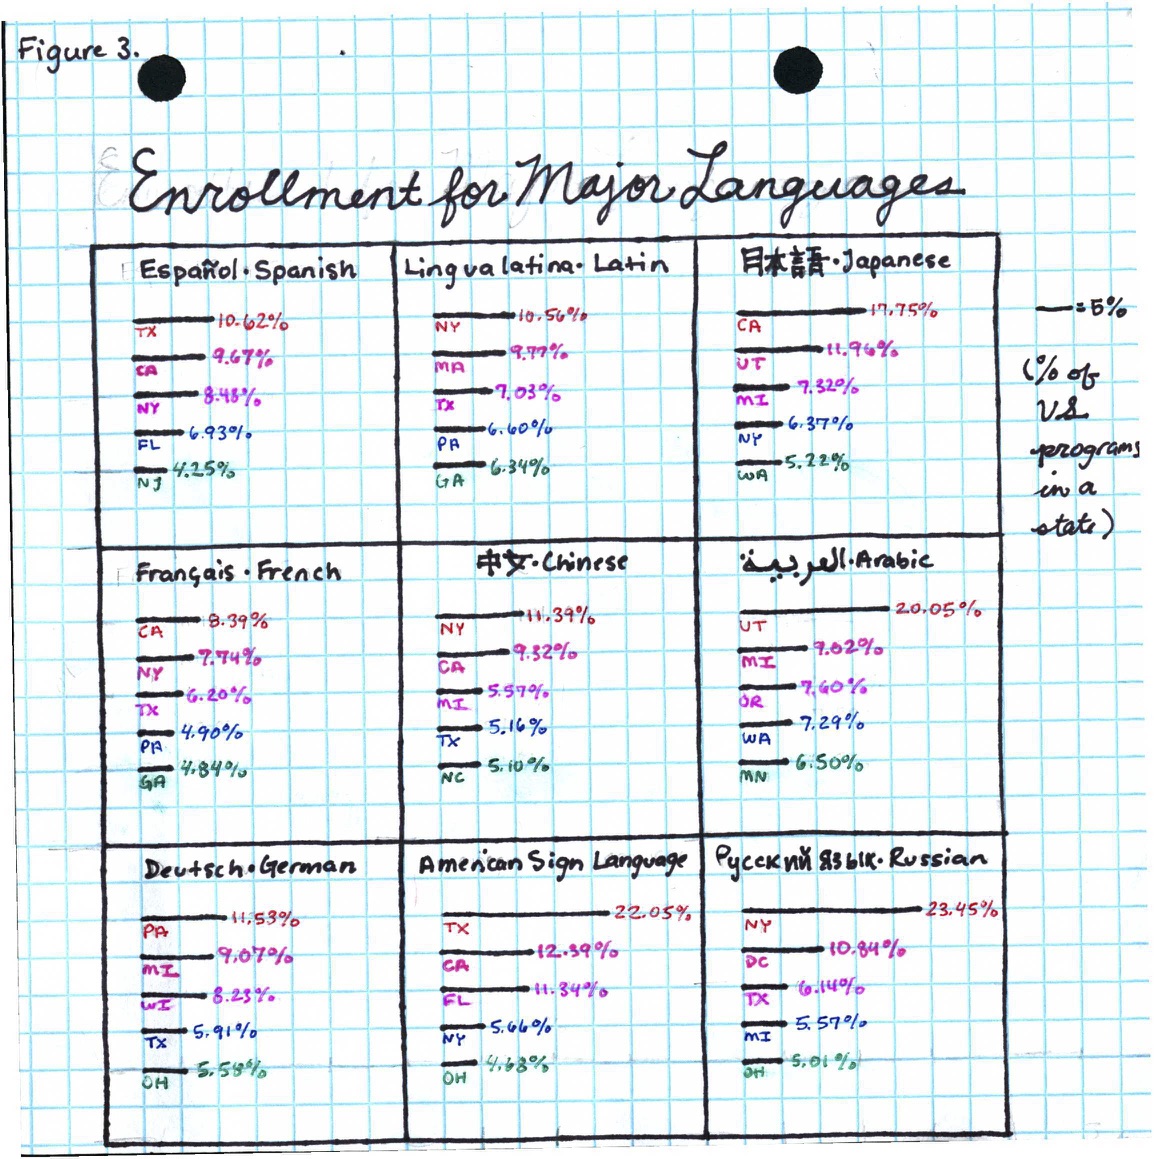 Figure 3.
Enrollment for Major Languages
Español · Spanish
TX 10.62%
CA 9.67%
NY 8.48%
FL 6.93%
NJ 4.25%
Lingua latina · Latin
NY 10.56%
MA 9.77%
TX 7.03%
PA 6.60%
GA 6.34%
日本語 · Japanese
CA 17.75%
UT 11.96%
MI 7.32%
NY 6.37%
WA 5.22%
— = 5%
(% of
US
programs
in a
state)
Français · French
CA 8.39%
NY 7.74%
TX 6.20%
PA 4.90%
GA 4.84%
中文 · Chinese
NY 11.39%
CA 9.32%
MI 5.57%
TX 5.16%
NC 5.10%
العربية · Arabic
UT 20.05%
MI 9.02%
OR 7.60%
WA 7.29%
MN 6.50%
Deutsch · German
PA 11.53%
MI 9.07%
WI 8.23%
TX 5.91%
OH 5.58%
American Sign Language
TX 22.05%
CA 12.39%
FL 11.34%
NY 5.66%
OH 4.68%
Русский язык · Russian
NY 23.45%
DC 10.84%
TX 6.14%
MI 5.57%
OH 5.01%